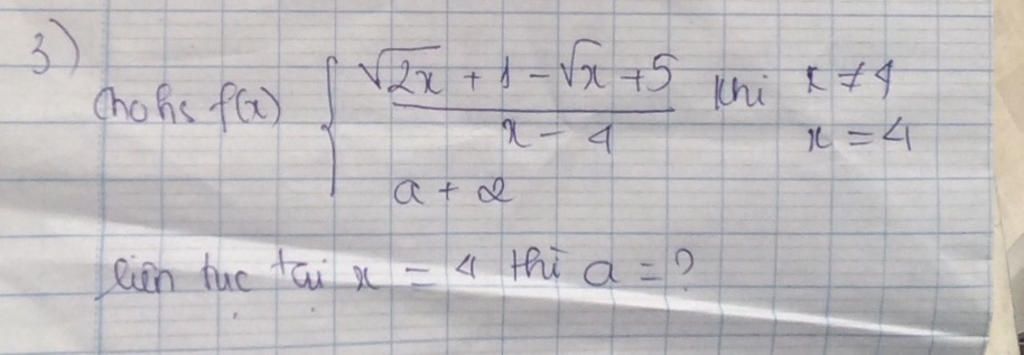 3)
Cho hs f(x) { √2x + 1 - √x + 5 khi x ≠ 4
x - 4 x = 4
a + 2
liên tục tại x = 4 thì a = ?